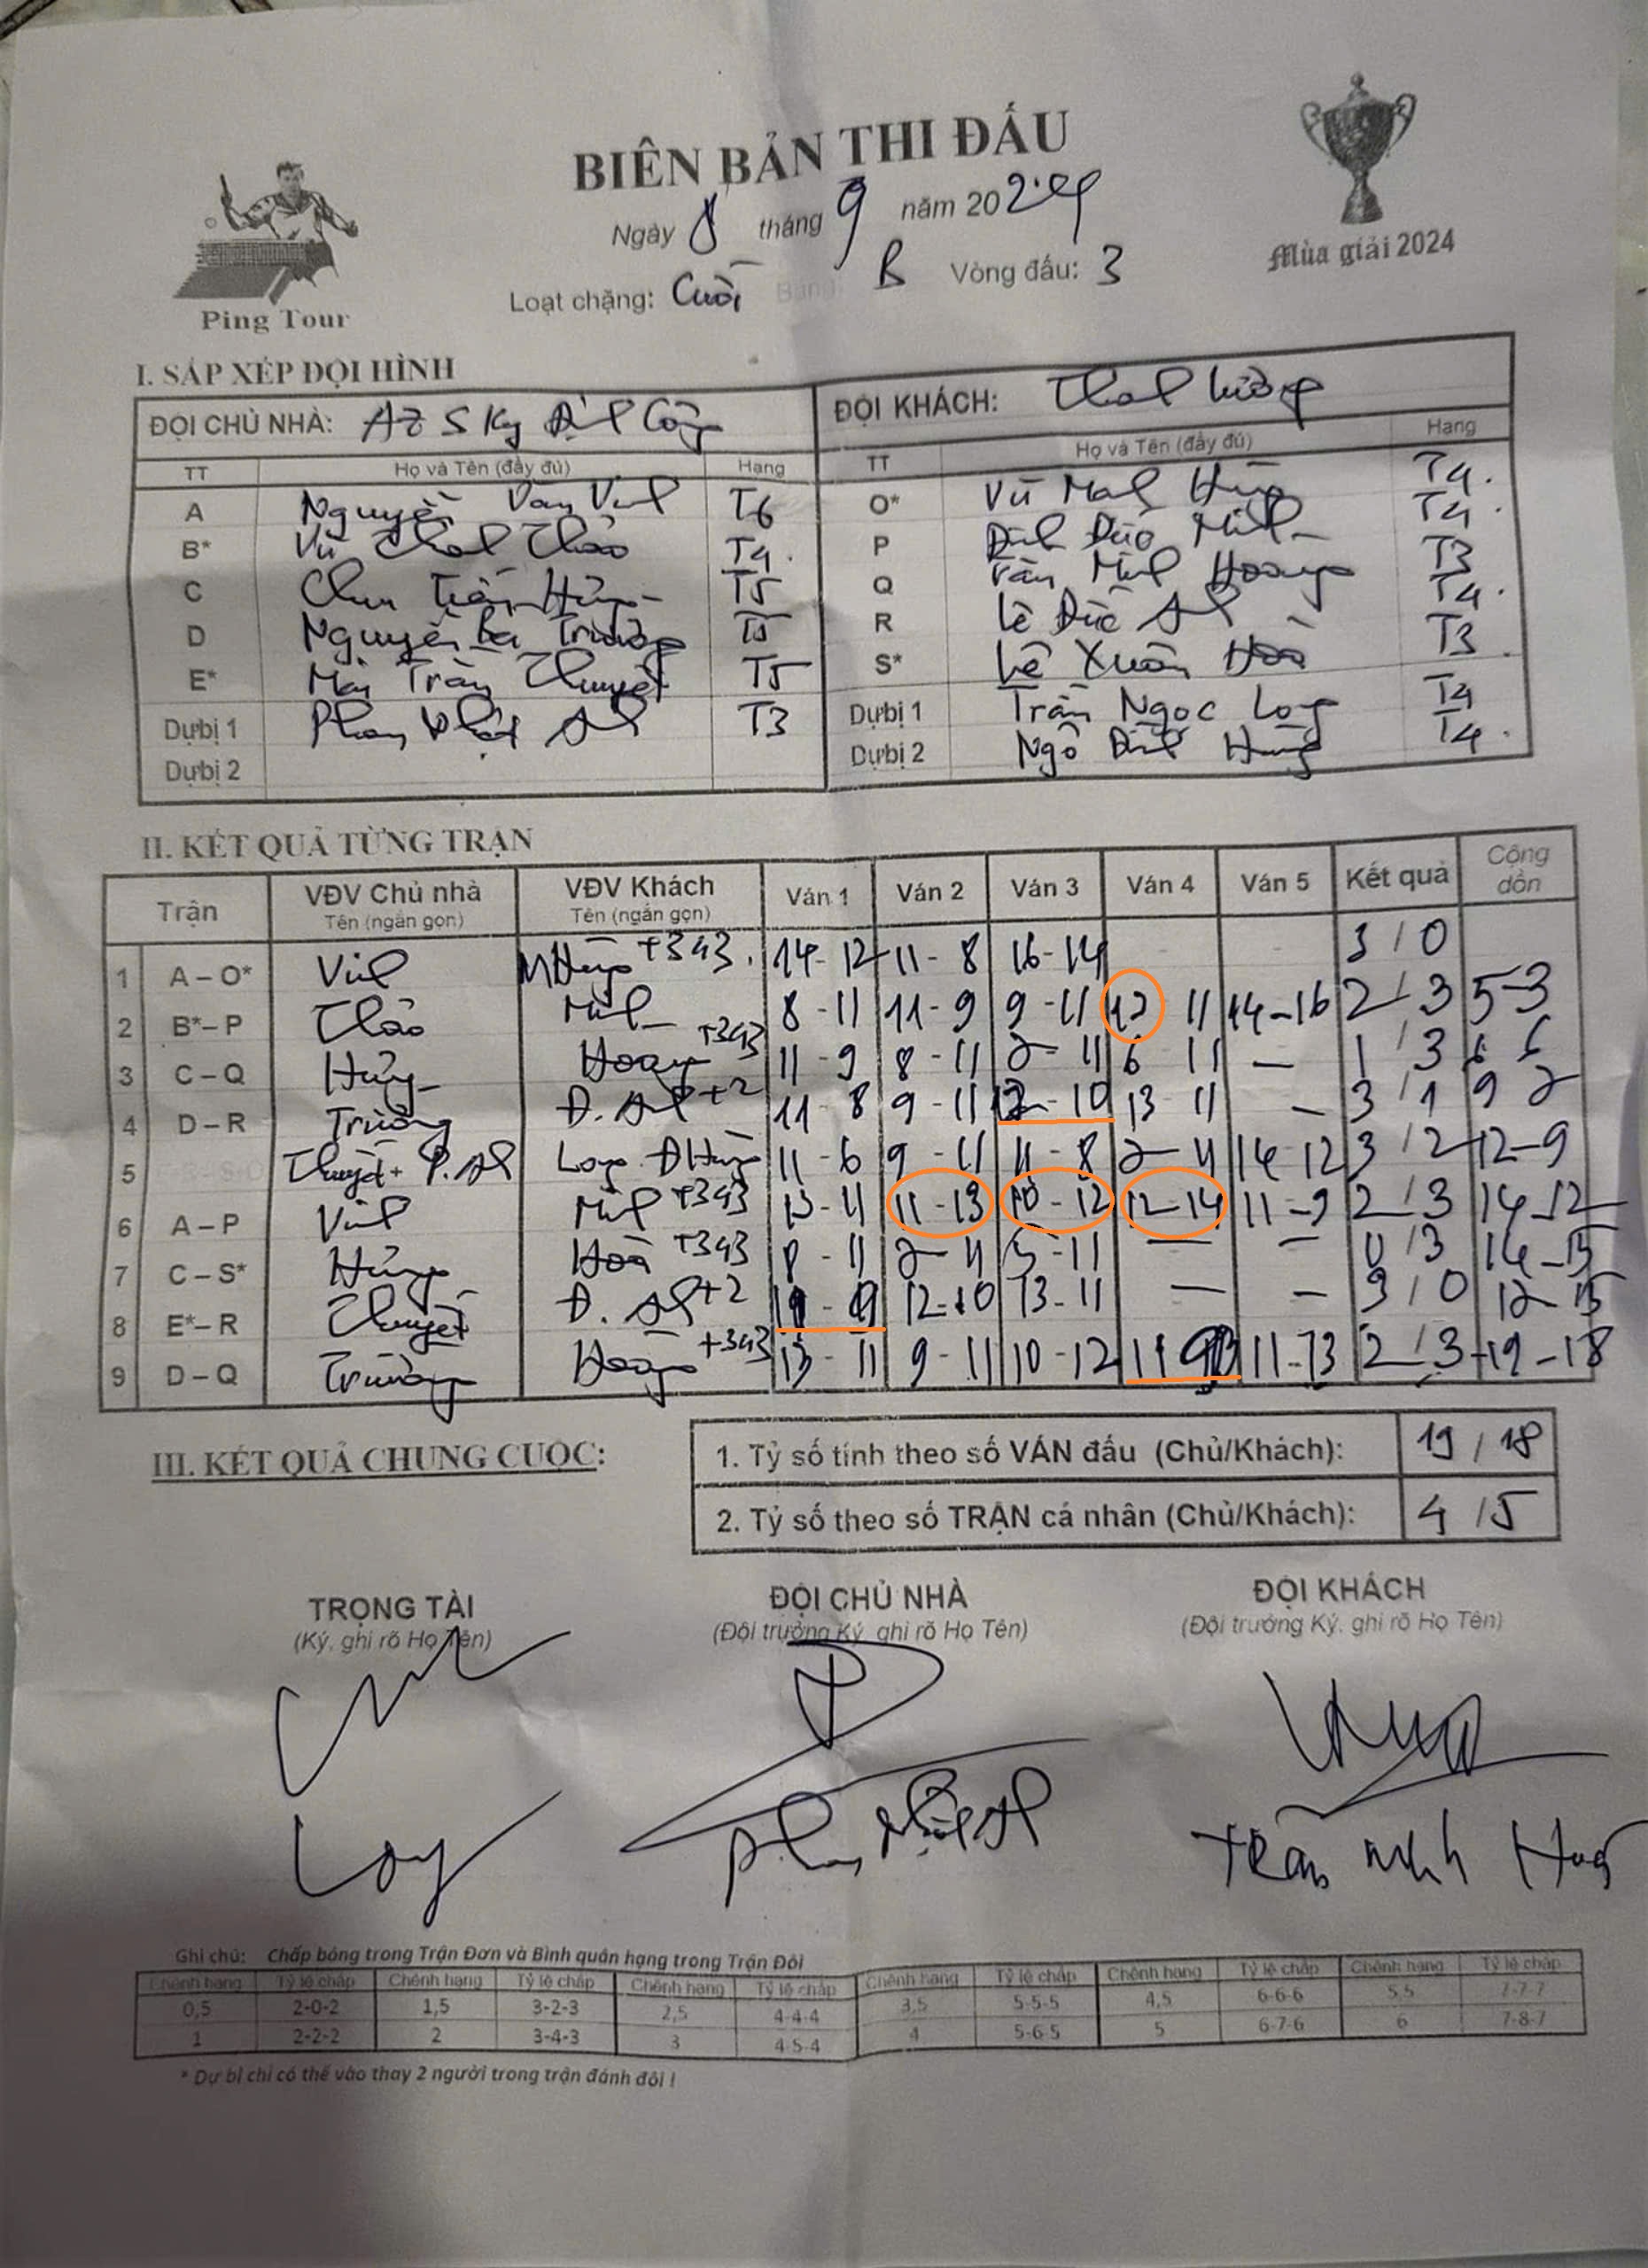 BIÊN BẢN THI ĐẤU
Ngày 8 tháng 9 năm 2024
Loạt chặng: Cuối Bảng: B Vòng đấu: 3
Ping Tour
Mùa giải 2024
I. SẮP XẾP ĐỘI HÌNH
ĐỘI CHỦ NHÀ: AZ SKy ĐỘI KHÁCH:
TT Họ và Tên (đầy đủ) Hạng TT Họ và Tên (đầy đủ) Hạng
A Nguyễn Văn Vinh T6 O* Vũ Mạnh Hùng T4.
B* Vũ Thảo T4. P Đinh Đức Minh T4.
C Chu Hưng T5 Q Trần Minh Hoàng T3
D Nguyễn Bá Trường T5 R Lê Đức Anh T4.
E* Trần Thuyết T5 S* Lê Xuân Hoà T3
Dự bị 1 Phan Nhật Anh T3 Dự bị 1 Trần Ngọc Long T4
Dự bị 2 Dự bị 2 Ngô Đình Hùng T4.
II. KẾT QUẢ TỪNG TRẬN
Trận VĐV Chủ nhà VĐV Khách Ván 1 Ván 2 Ván 3 Ván 4 Ván 5 Kết quả Cộng dồn
Tên (ngắn gọn) Tên (ngắn gọn)
1 A – O* Vinh MHùng +343. 14-12 11-8 16-14 3/0
2 B* – P Thảo Minh 8-11 11-9 9-11 11 14-16 2/3 5-3
3 C – Q Hưng Hoàng +343 11-9 8-11 2-11 6 11 – 1/3 6 6
4 D – R Trường Đ. Anh +2 11-8 9-11 12-10 13 11 – 3/1 9
5 Thuyết + P. Anh Long ĐHùng 11-6 9-11 11-8 2-11 14-12 3/2 12-9
6 A – P Vinh Minh +343 13-11 11-13 10-12 12-14 11-9 2/3 14-12
7 C – S* Hưng Hoà +343 8-11 2-11 5-11 – – 0/3 14-15
8 E* – R Thuyết Đ. Anh +2 12-10 13-11 – – 3/0 17-15
9 D – Q Trường Hoàng +343 13-11 9-11 10-12 11 11-13 2/3 19-18
III. KẾT QUẢ CHUNG CUỘC:
1. Tỷ số tính theo số VÁN đấu (Chủ/Khách): 19/18
2. Tỷ số theo số TRẬN cá nhân (Chủ/Khách): 4/5
TRỌNG TÀI ĐỘI CHỦ NHÀ ĐỘI KHÁCH
(Ký, ghi rõ Họ Tên) (Đội trưởng Ký, ghi rõ Họ Tên) (Đội trưởng Ký, ghi rõ Họ Tên)
Long Phan Nhật Anh Trần Minh
Ghi chú: Chấp bóng trong Trận Đơn và Bình quân hạng trong Trận Đôi
Chênh hạng Tỷ lệ chấp Chênh hạng Tỷ lệ chấp Chênh hạng Tỷ lệ chấp Chênh hạng Tỷ lệ chấp Chênh hạng Tỷ lệ chấp Chênh hạng Tỷ lệ chấp
0,5 2-0-2 1,5 3-2-3 2,5 4-4-4 3,5 5-5-5 4,5 6-6-6 5,5 7-7-7
1 2-2-2 2 3-4-3 3 4-5-4 4 5-6-5 5 6-7-6 6 7-8-7
* Dự bị chỉ có thể vào thay 2 người trong trận đánh đôi !